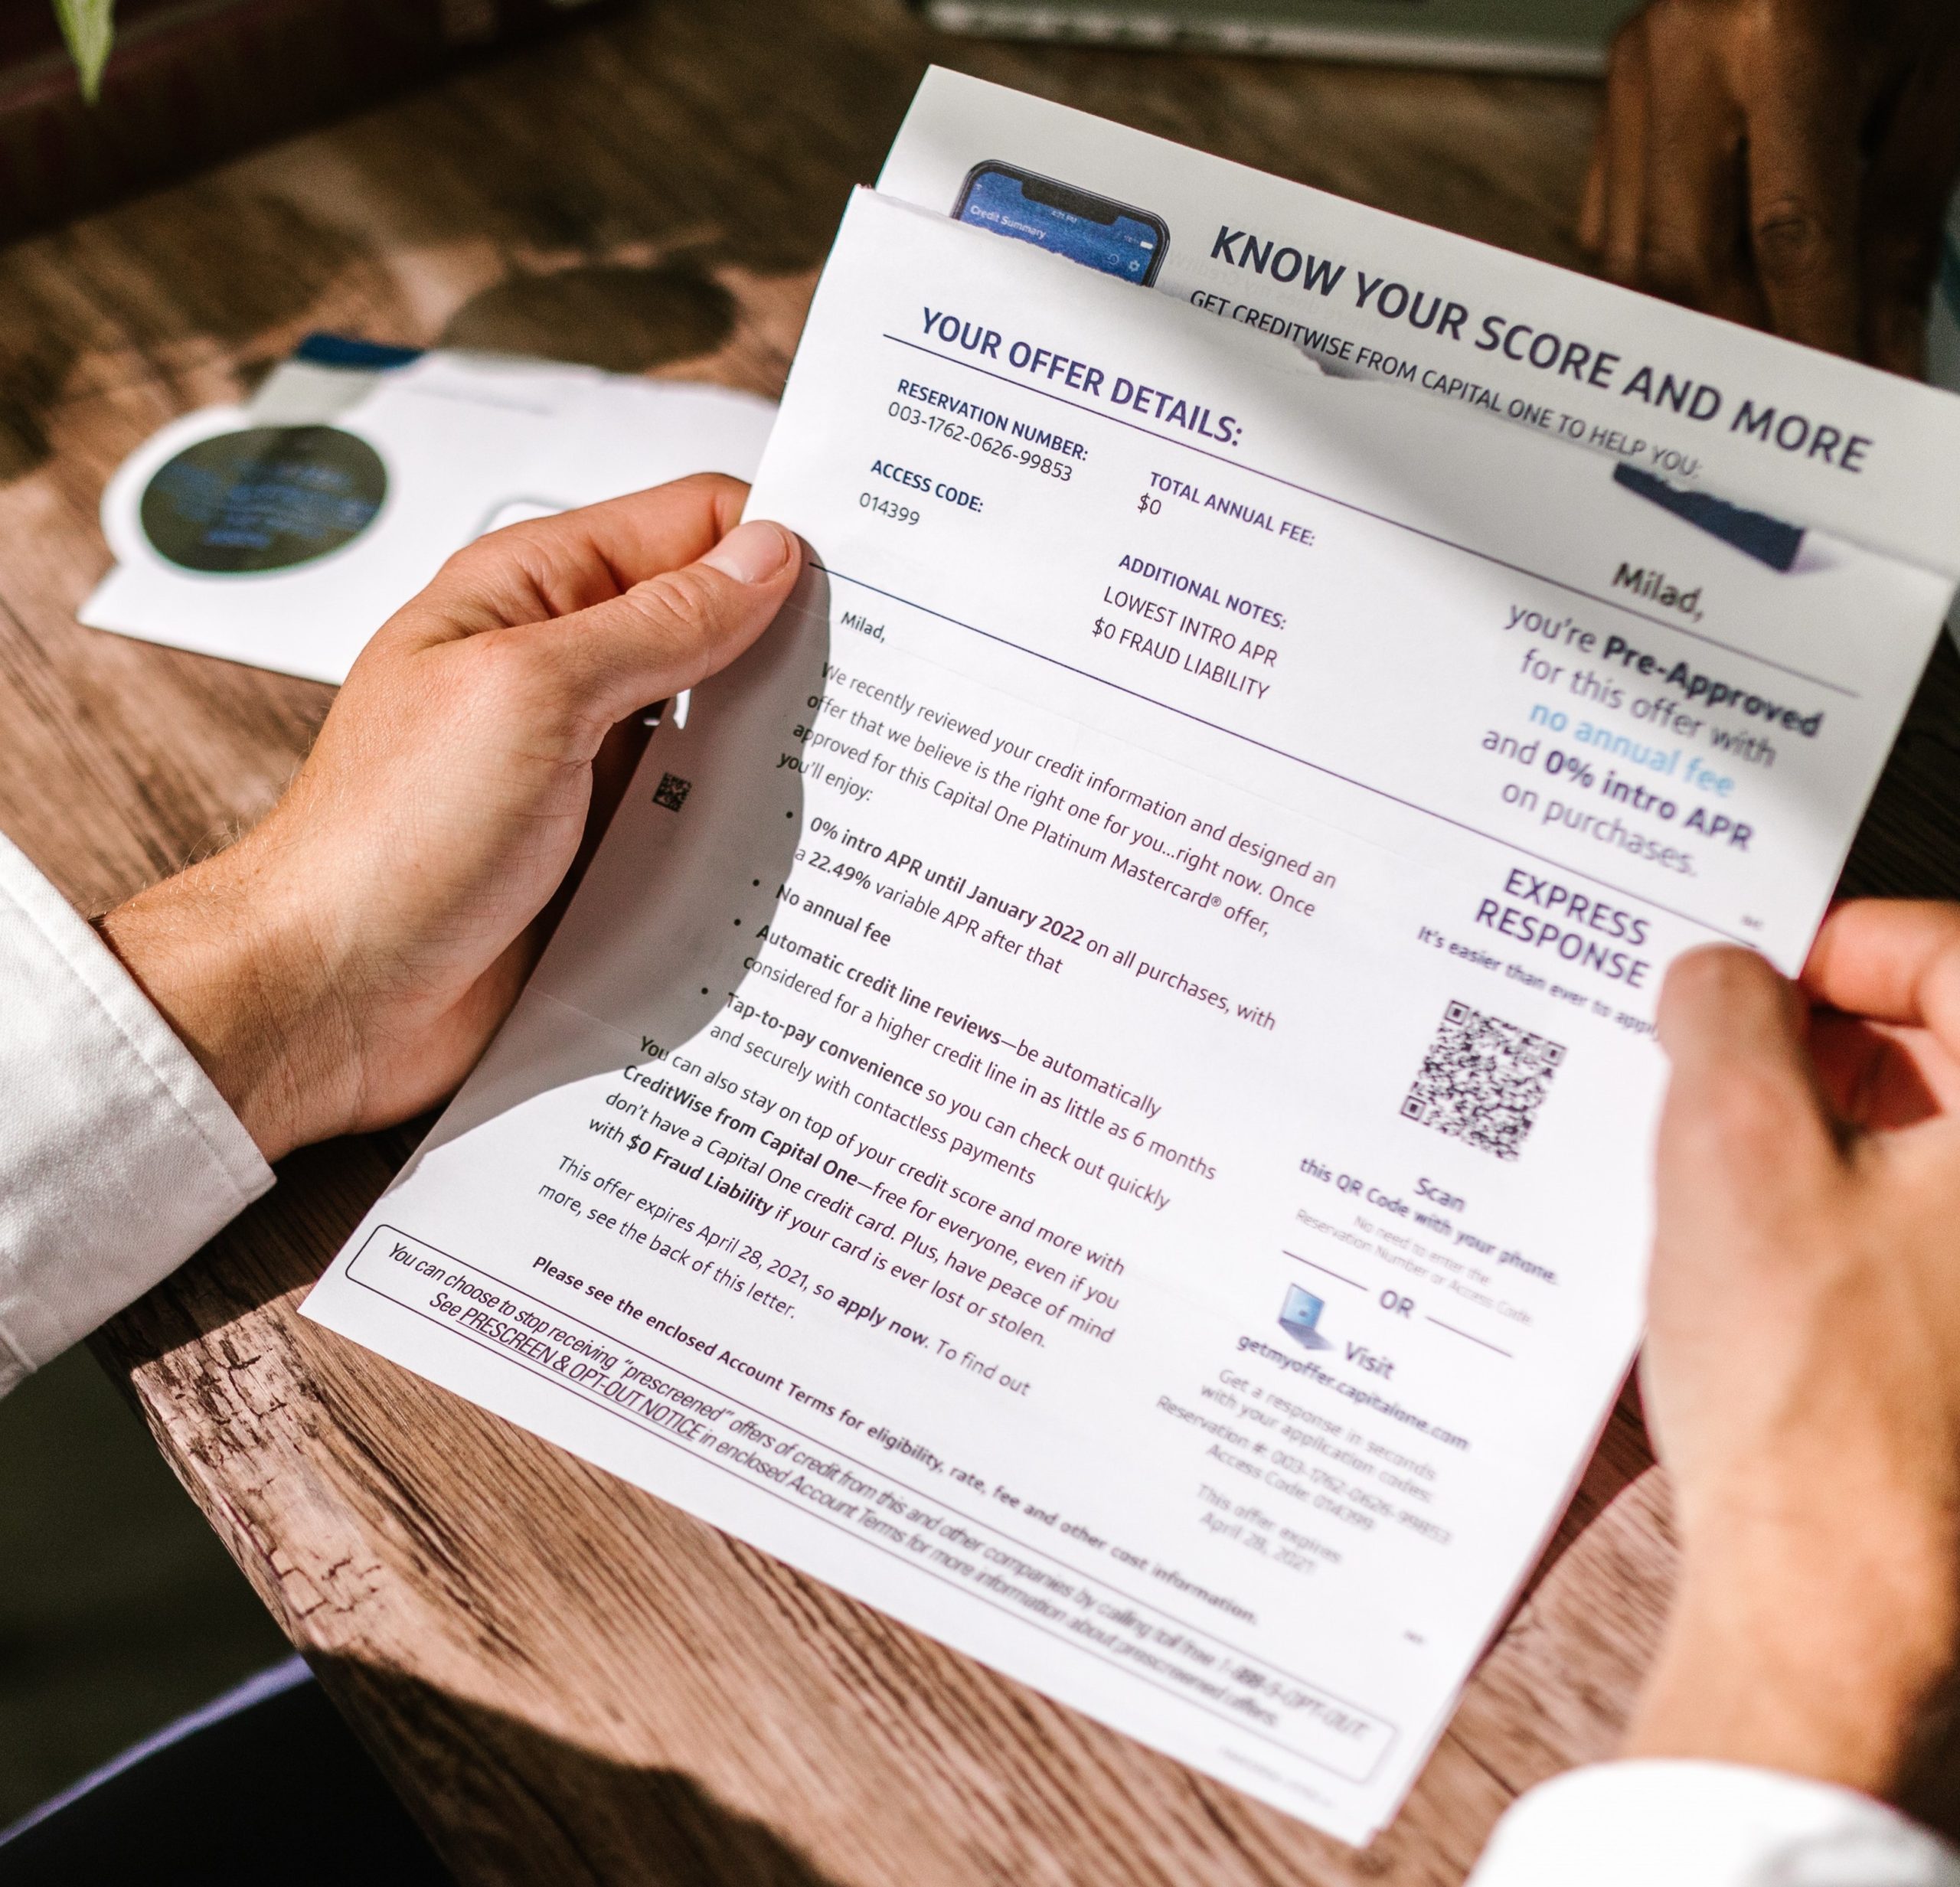 Credit Summary
KNOW YOUR SCORE AND MORE
GET CREDITWISE FROM CAPITAL ONE TO HELP YOU:
YOUR OFFER DETAILS:
RESERVATION NUMBER:
003-1762-0626-99853
ACCESS CODE:
014399
TOTAL ANNUAL FEE:
$0
ADDITIONAL NOTES:
LOWEST INTRO APR
$0 FRAUD LIABILITY
Milad,
you're Pre-Approved
for this offer with
no annual fee
and 0% intro APR
on purchases.
Milad,
We recently reviewed your credit information and designed an
offer that we believe is the right one for you...right now. Once
approved for this Capital One Platinum Mastercard® offer,
you'll enjoy:
• 0% intro APR until January 2022 on all purchases, with
a 22.49% variable APR after that
• No annual fee
• Automatic credit line reviews—be automatically
considered for a higher credit line in as little as 6 months
• Tap-to-pay convenience so you can check out quickly
and securely with contactless payments
You can also stay on top of your credit score and more with
CreditWise from Capital One—free for everyone, even if you
don't have a Capital One credit card. Plus, have peace of mind
with $0 Fraud Liability if your card is ever lost or stolen.
This offer expires April 28, 2021, so apply now. To find out
more, see the back of this letter.
Please see the enclosed Account Terms for eligibility, rate, fee and other cost information.
You can choose to stop receiving "prescreened" offers of credit from this and other companies by calling toll free 1-888-5-OPT-OUT.
See PRESCREEN & OPT-OUT NOTICE in enclosed Account Terms for more information about prescreened offers.
EXPRESS
RESPONSE
It's easier than ever to
Scan
this QR Code with your phone.
No need to enter the
Reservation Number or Access Code.
OR
Visit
getmyoffer.capitalone.com
Get a response in seconds
with your application codes:
Reservation #: 003-1762-0626-99853
Access Code: 014399
This offer expires
April 28, 2021